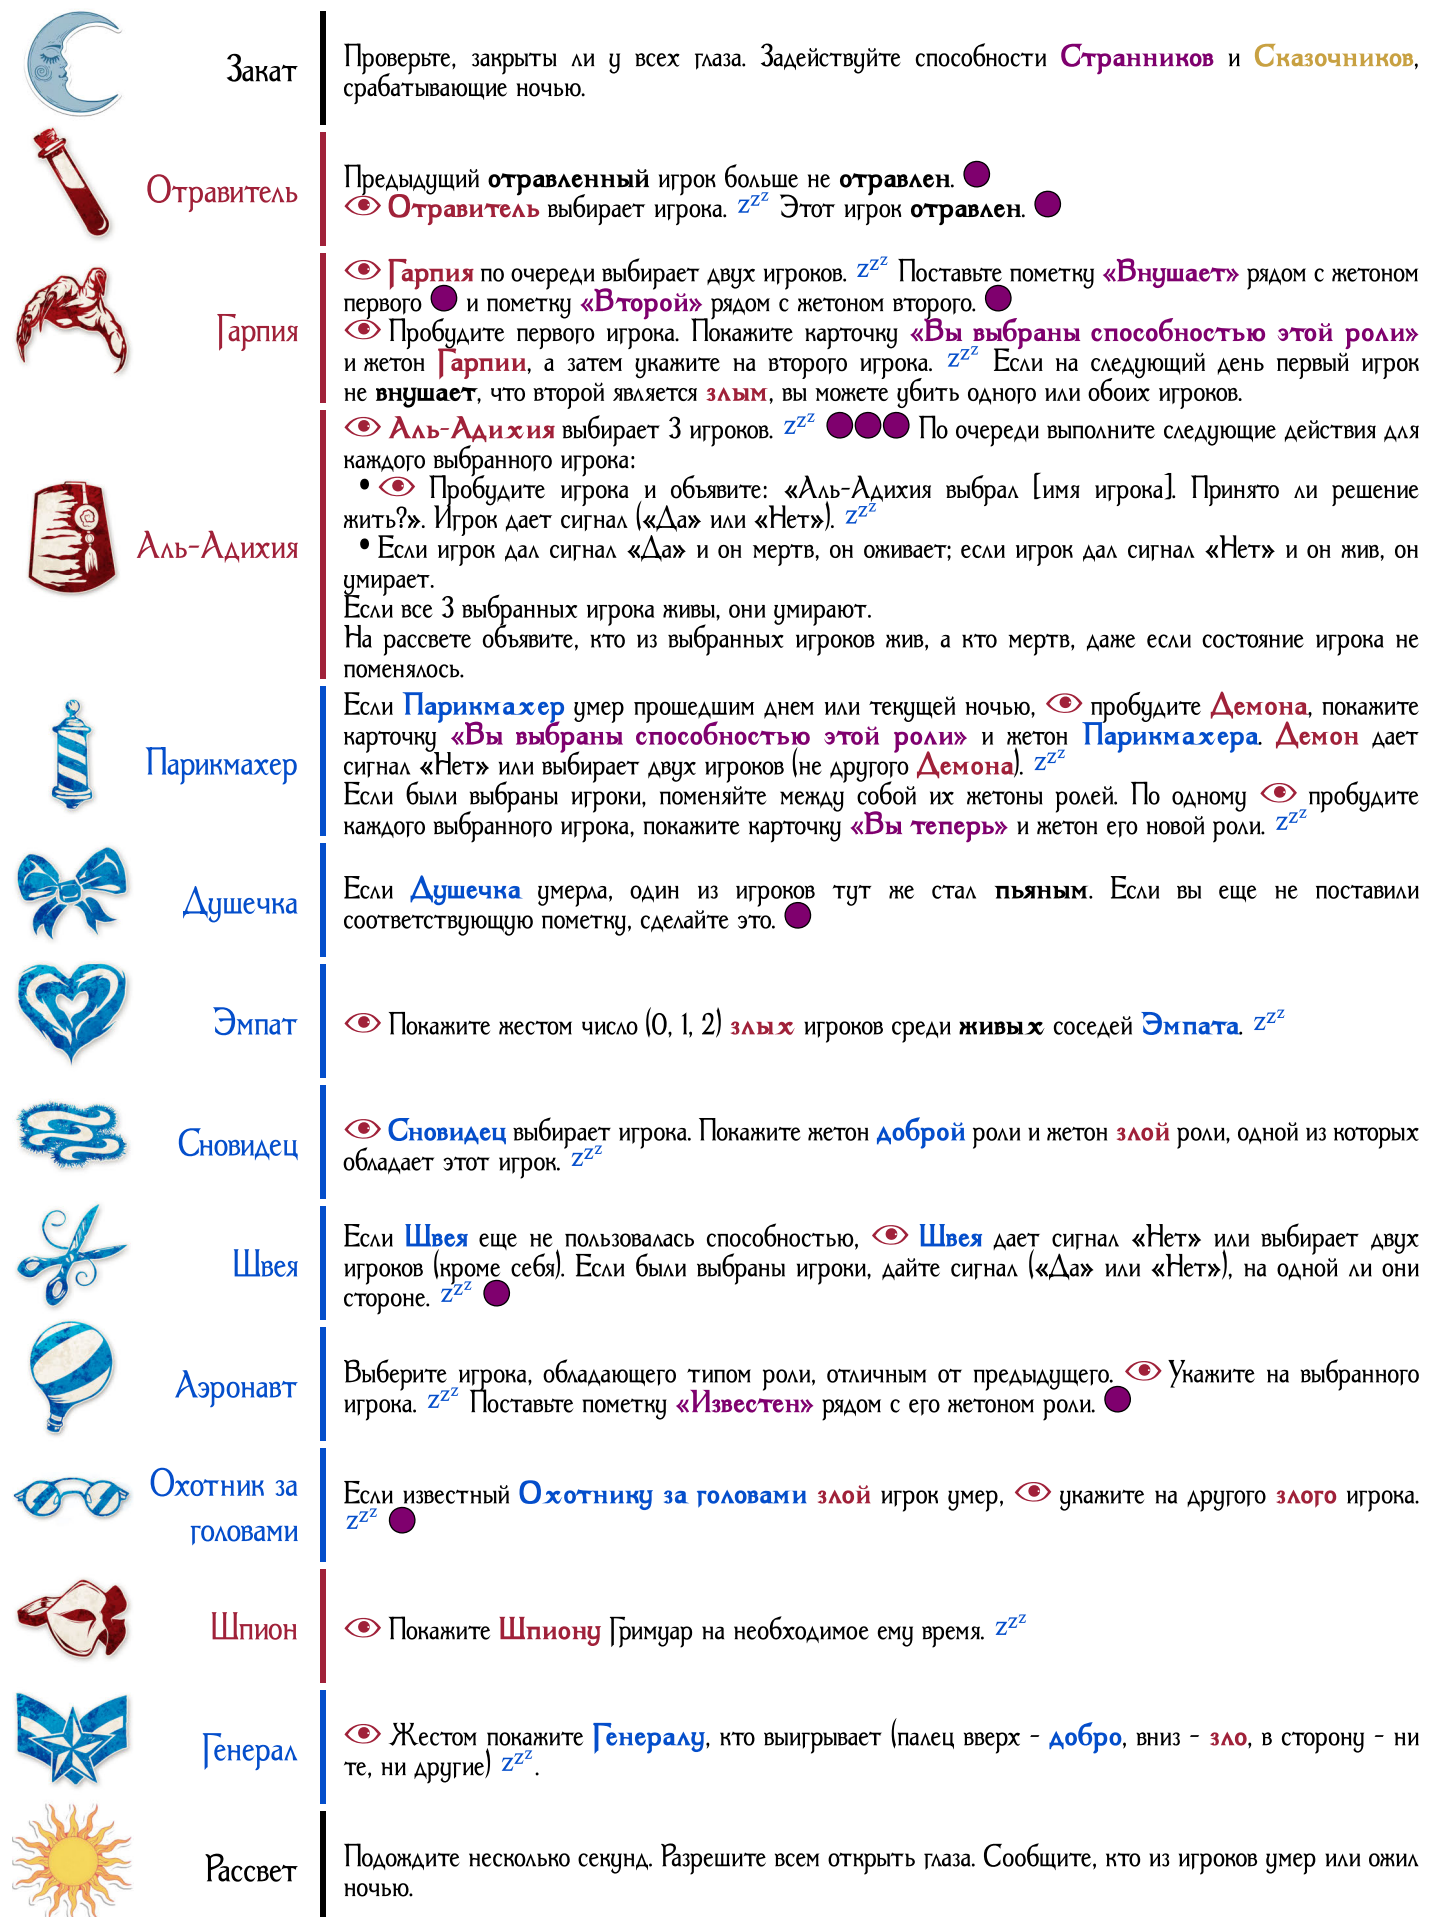 Закат
Проверьте, закрыты ли у всех глаза. Задействуйте способности Странников и Сказочников,
срабатывающие ночью.
Отравитель
Предыдущий отравленный игрок больше не отравлен.
Отравитель выбирает игрока. zzz Этот игрок отравлен.
Гарпия
Гарпия по очереди выбирает двух игроков. zzz Поставьте пометку «Внушает» рядом с жетоном
первого и пометку «Второй» рядом с жетоном второго.
Пробудите первого игрока. Покажите карточку «Вы выбраны способностью этой роли»
и жетон Гарпии, а затем укажите на второго игрока. zzz Если на следующий день первый игрок
не внушает, что второй является злым, вы можете убить одного или обоих игроков.
Аль-Адихия
Аль-Адихия выбирает 3 игроков. zzz По очереди выполните следующие действия для
каждого выбранного игрока:
• Пробудите игрока и объявите: «Аль-Адихия выбрал [имя игрока]. Принято ли решение
жить?». Игрок дает сигнал («Да» или «Нет»). zzz
• Если игрок дал сигнал «Да» и он мертв, он оживает; если игрок дал сигнал «Нет» и он жив, он
умирает.
Если все 3 выбранных игрока живы, они умирают.
На рассвете объявите, кто из выбранных игроков жив, а кто мертв, даже если состояние игрока не
поменялось.
Парикмахер
Если Парикмахер умер прошедшим днем или текущей ночью, пробудите Демона, покажите
карточку «Вы выбраны способностью этой роли» и жетон Парикмахера. Демон дает
сигнал «Нет» или выбирает двух игроков (не другого Демона). zzz
Если были выбраны игроки, поменяйте между собой их жетоны ролей. По одному пробудите
каждого выбранного игрока, покажите карточку «Вы теперь» и жетон его новой роли. zzz
Душечка
Если Душечка умерла, один из игроков тут же стал пьяным. Если вы еще не поставили
соответствующую пометку, сделайте это.
Эмпат
Покажите жестом число (0, 1, 2) злых игроков среди живых соседей Эмпата. zzz
Сновидец
Сновидец выбирает игрока. Покажите жетон доброй роли и жетон злой роли, одной из которых
обладает этот игрок. zzz
Швея
Если Швея еще не пользовалась способностью, Швея дает сигнал «Нет» или выбирает двух
игроков (кроме себя). Если были выбраны игроки, дайте сигнал («Да» или «Нет»), на одной ли они
стороне. zzz
Аэронавт
Выберите игрока, обладающего типом роли, отличным от предыдущего. Укажите на выбранного
игрока. zzz Поставьте пометку «Известен» рядом с его жетоном роли.
Охотник за
головами
Если известный Охотнику за головами злой игрок умер, укажите на другого злого игрока.
zzz
Шпион
Покажите Шпиону Гримуар на необходимое ему время. zzz
Генерал
Жестом покажите Генералу, кто выигрывает (палец вверх - добро, вниз - зло, в сторону - ни
те, ни другие) zzz.
Рассвет
Подождите несколько секунд. Разрешите всем открыть глаза. Сообщите, кто из игроков умер или ожил
ночью.